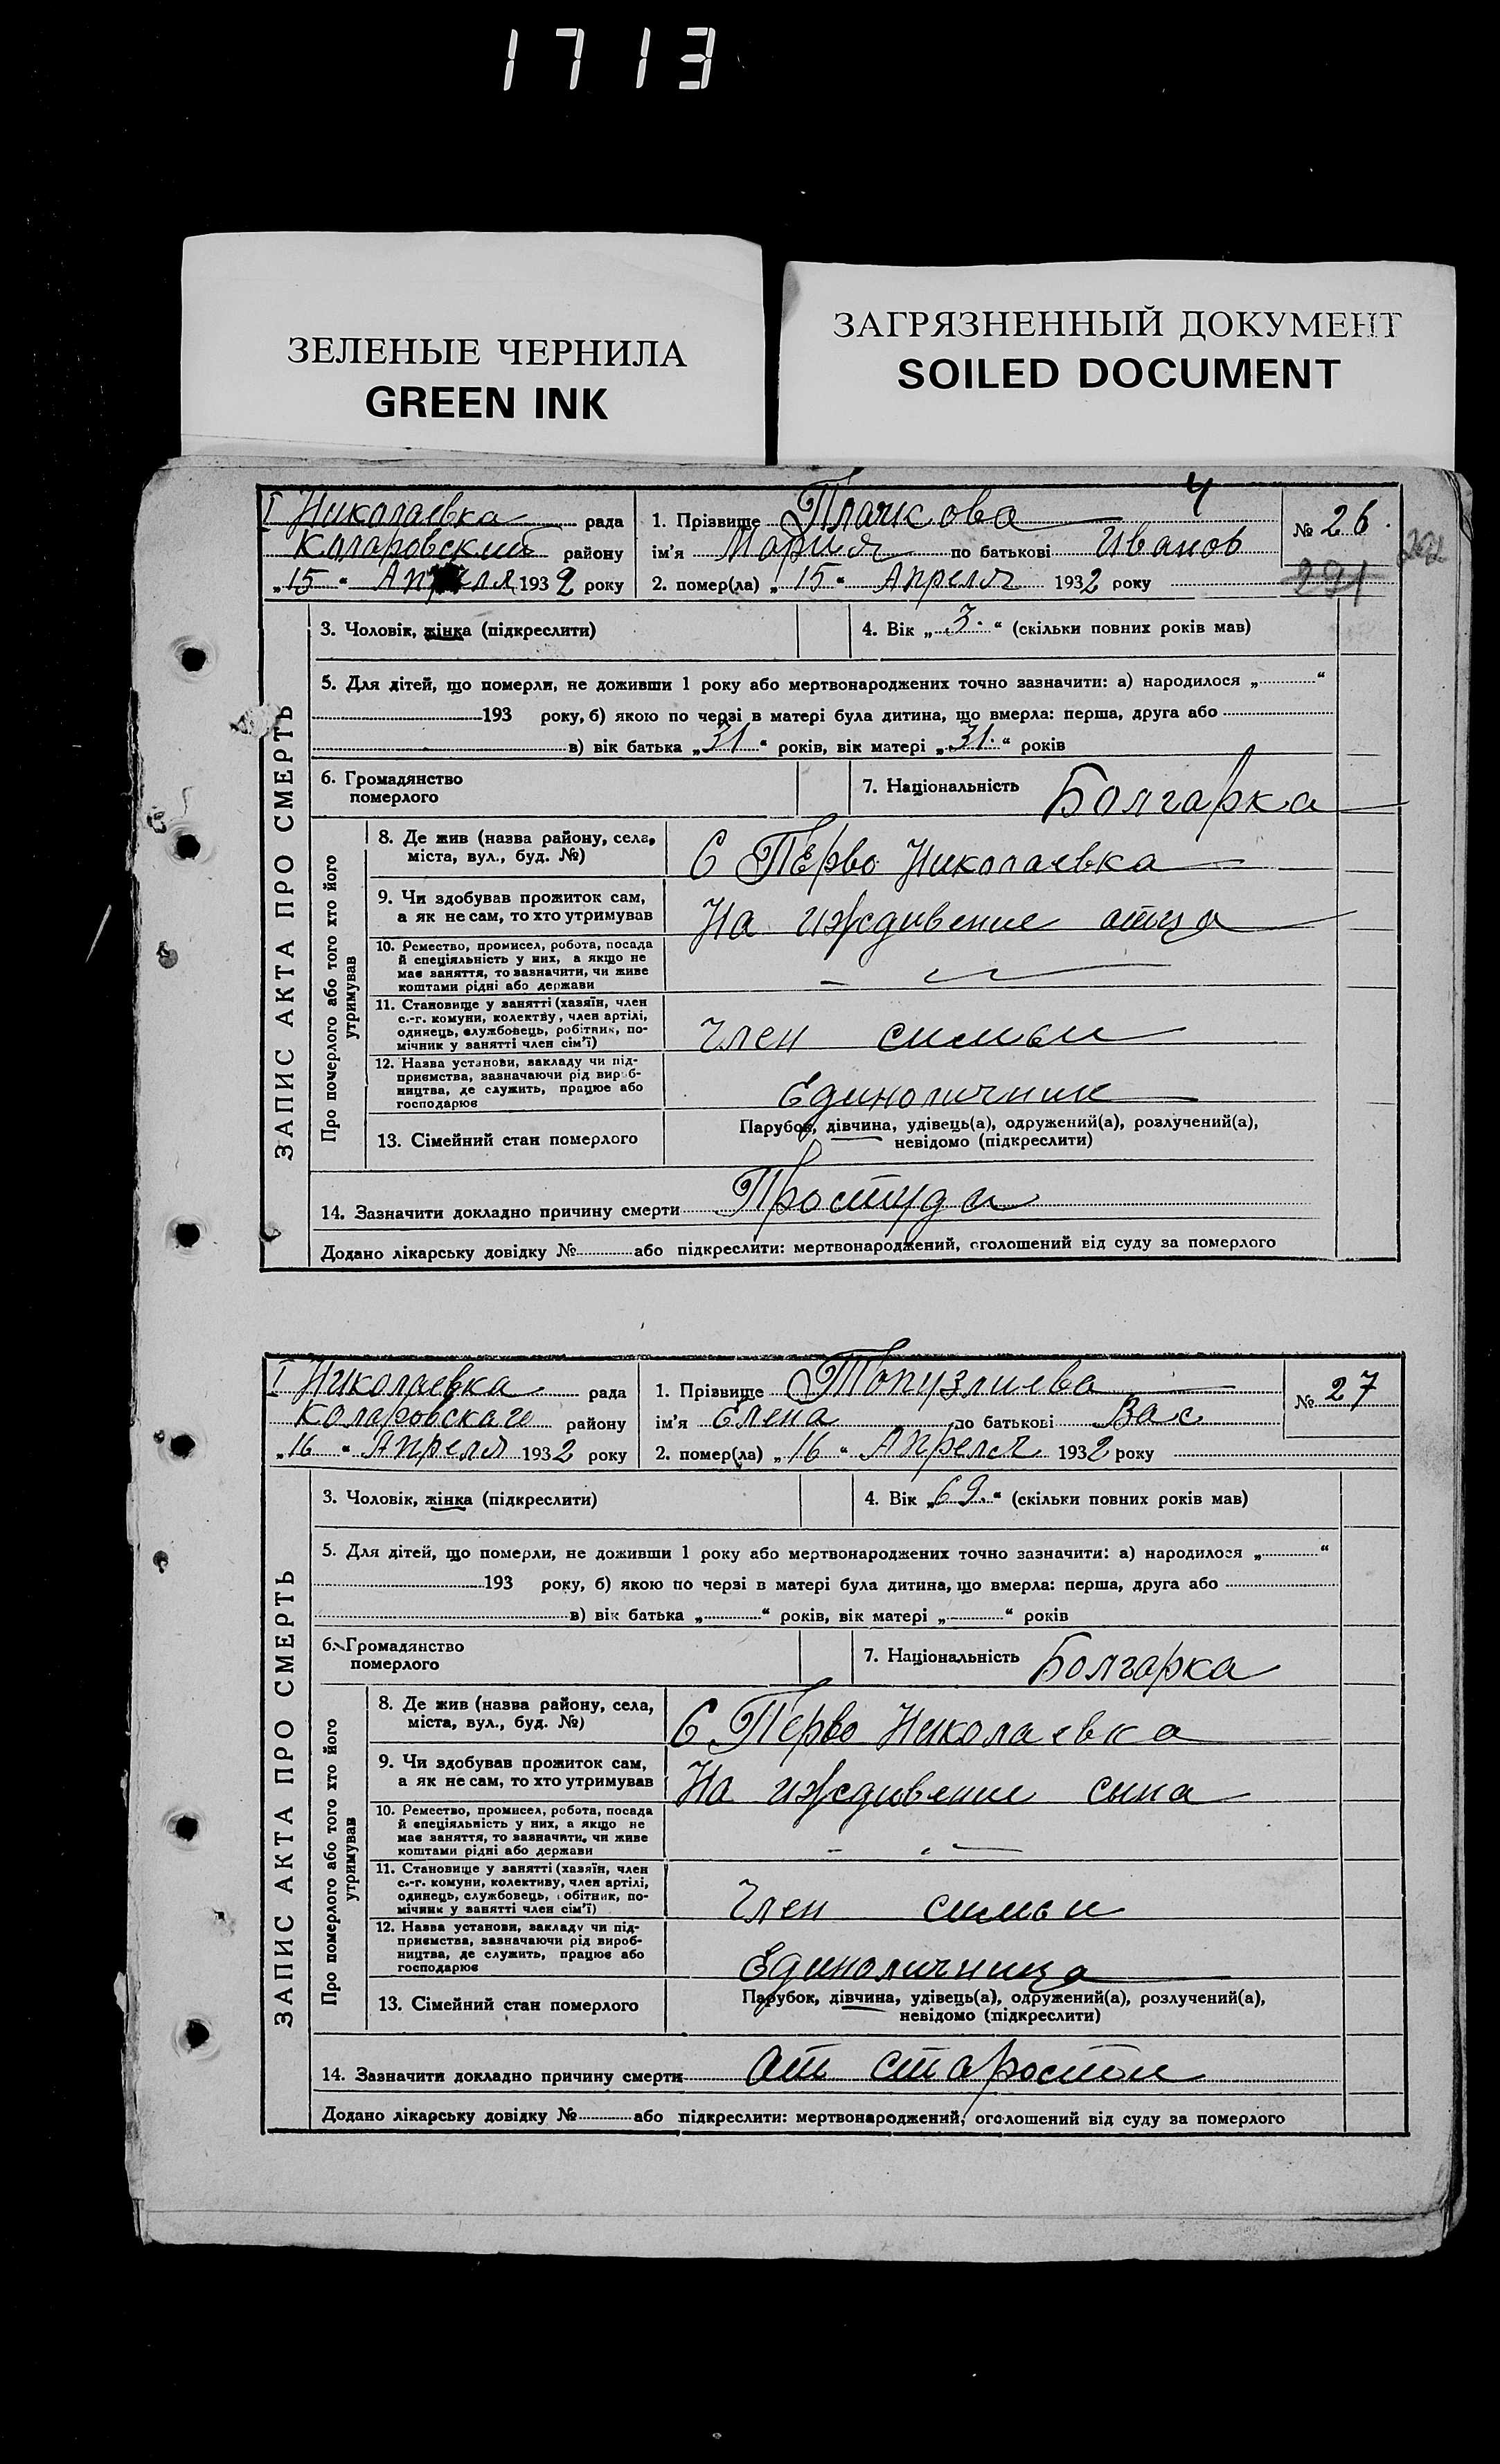 1713
ЗЕЛЕНЫЕ ЧЕРНИЛА
GREEN INK
ЗАГРЯЗНЕННЫЙ ДОКУМЕНТ
SOILED DOCUMENT
4
I Николаевка рада
Коларовский району
„15“ Апреля 1932 року
1. Прізвище Плачкова
ім'я Мария по батькові Иванов
2. помер(ла) „15“ Апреля 1932 року
№ 26.
291
ЗАПИС АКТА ПРО СМЕРТЬ
3. Чоловік, жінка (підкреслити)
4. Вік „3.“ (скільки повних років мав)
5. Для дітей, що померли, не доживши 1 року або мертвонароджених точно зазначити: а) народилося „ “
193 року, б) якою по черзі в матері була дитина, що вмерла: перша, друга або
в) вік батька „31“ років, вік матері „31.“ років
6. Громадянство
померлого
7. Національність Болгарка
Про померлого або того хто його
утримував
8. Де жив (назва району, села,
міста, вул., буд. №)
С Перво Николаевка
9. Чи здобував прожиток сам,
а як не сам, то хто утримував
На иждивение атца
10. Ремество, промисел, робота, посада
й спеціяльність у них, а якщо не
має заняття, то зазначити, чи живе
коштами рідні або держави
11. Становище у занятті (хазяїн, член
с.-г. комуни, колектву, член артілі,
одинець, службовець, робітник, по-
мічник у занятті член сім'ї)
Член симьи
12. Назва установи, закладу чи під-
приємства, зазначаючи рід вироб-
ництва, де служить, працює або
господарює
Единоличник
13. Сімейний стан померлого
Парубок, дівчина, удівець(а), одружений(а), розлучений(а),
невідомо (підкреслити)
14. Зазначити докладно причину смерти Простуда
Додано лікарську довідку № або підкреслити: мертвонароджений, оголошений від суду за померлого
I Николаевка рада
Коларовскаго району
„16“ Апреля 1932 року
1. Прізвище Топузлиева
ім'я Елена по батькові Вас
2. помер(ла) „16“ Апреля 1932 року
№ 27
ЗАПИС АКТА ПРО СМЕРТЬ
3. Чоловік, жінка (підкреслити)
4. Вік „69.“ (скільки повних років мав)
5. Для дітей, що померли, не доживши 1 року або мертвонароджених точно зазначити: а) народилося „ “
193 року, б) якою по черзі в матері була дитина, що вмерла: перша, друга або
в) вік батька „ “ років, вік матері „ “ років
6. Громадянство
померлого
7. Національність Болгарка
Про померлого або того хто його
утримував
8. Де жив (назва району, села,
міста, вул., буд. №)
С Перво Николаевка
9. Чи здобував прожиток сам,
а як не сам, то хто утримував
На иждивение сына
10. Ремество, промисел, робота, посада
й спеціяльність у них, а якщо не
має заняття, то зазначити, чи живе
коштами рідні або держави
11. Становище у занятті (хазяїн, член
с.-г. комуни, колективу, член артілі,
одинець, службовець, робітник, по-
мічник у занятті член сім'ї)
Член симьи
12. Назва установи, закладу чи під-
приємства, зазначаючи рід вироб-
ництва, де служить, працює або
господарює
Единоличница
13. Сімейний стан померлого
Парубок, дівчина, удівець(а), одружений(а), розлучений(а),
невідомо (підкреслити)
14. Зазначити докладно причину смерти ат старости
Додано лікарську довідку № або підкреслити: мертвонароджений, оголошений від суду за померлого